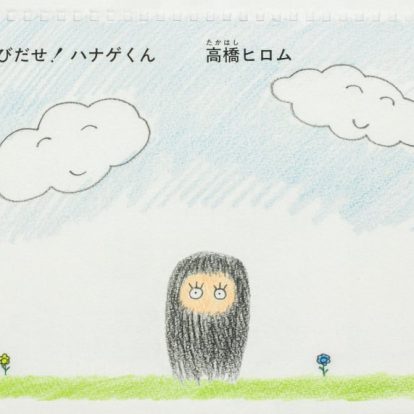 びだせ！ハナゲくん 高橋ヒロム
たかはし